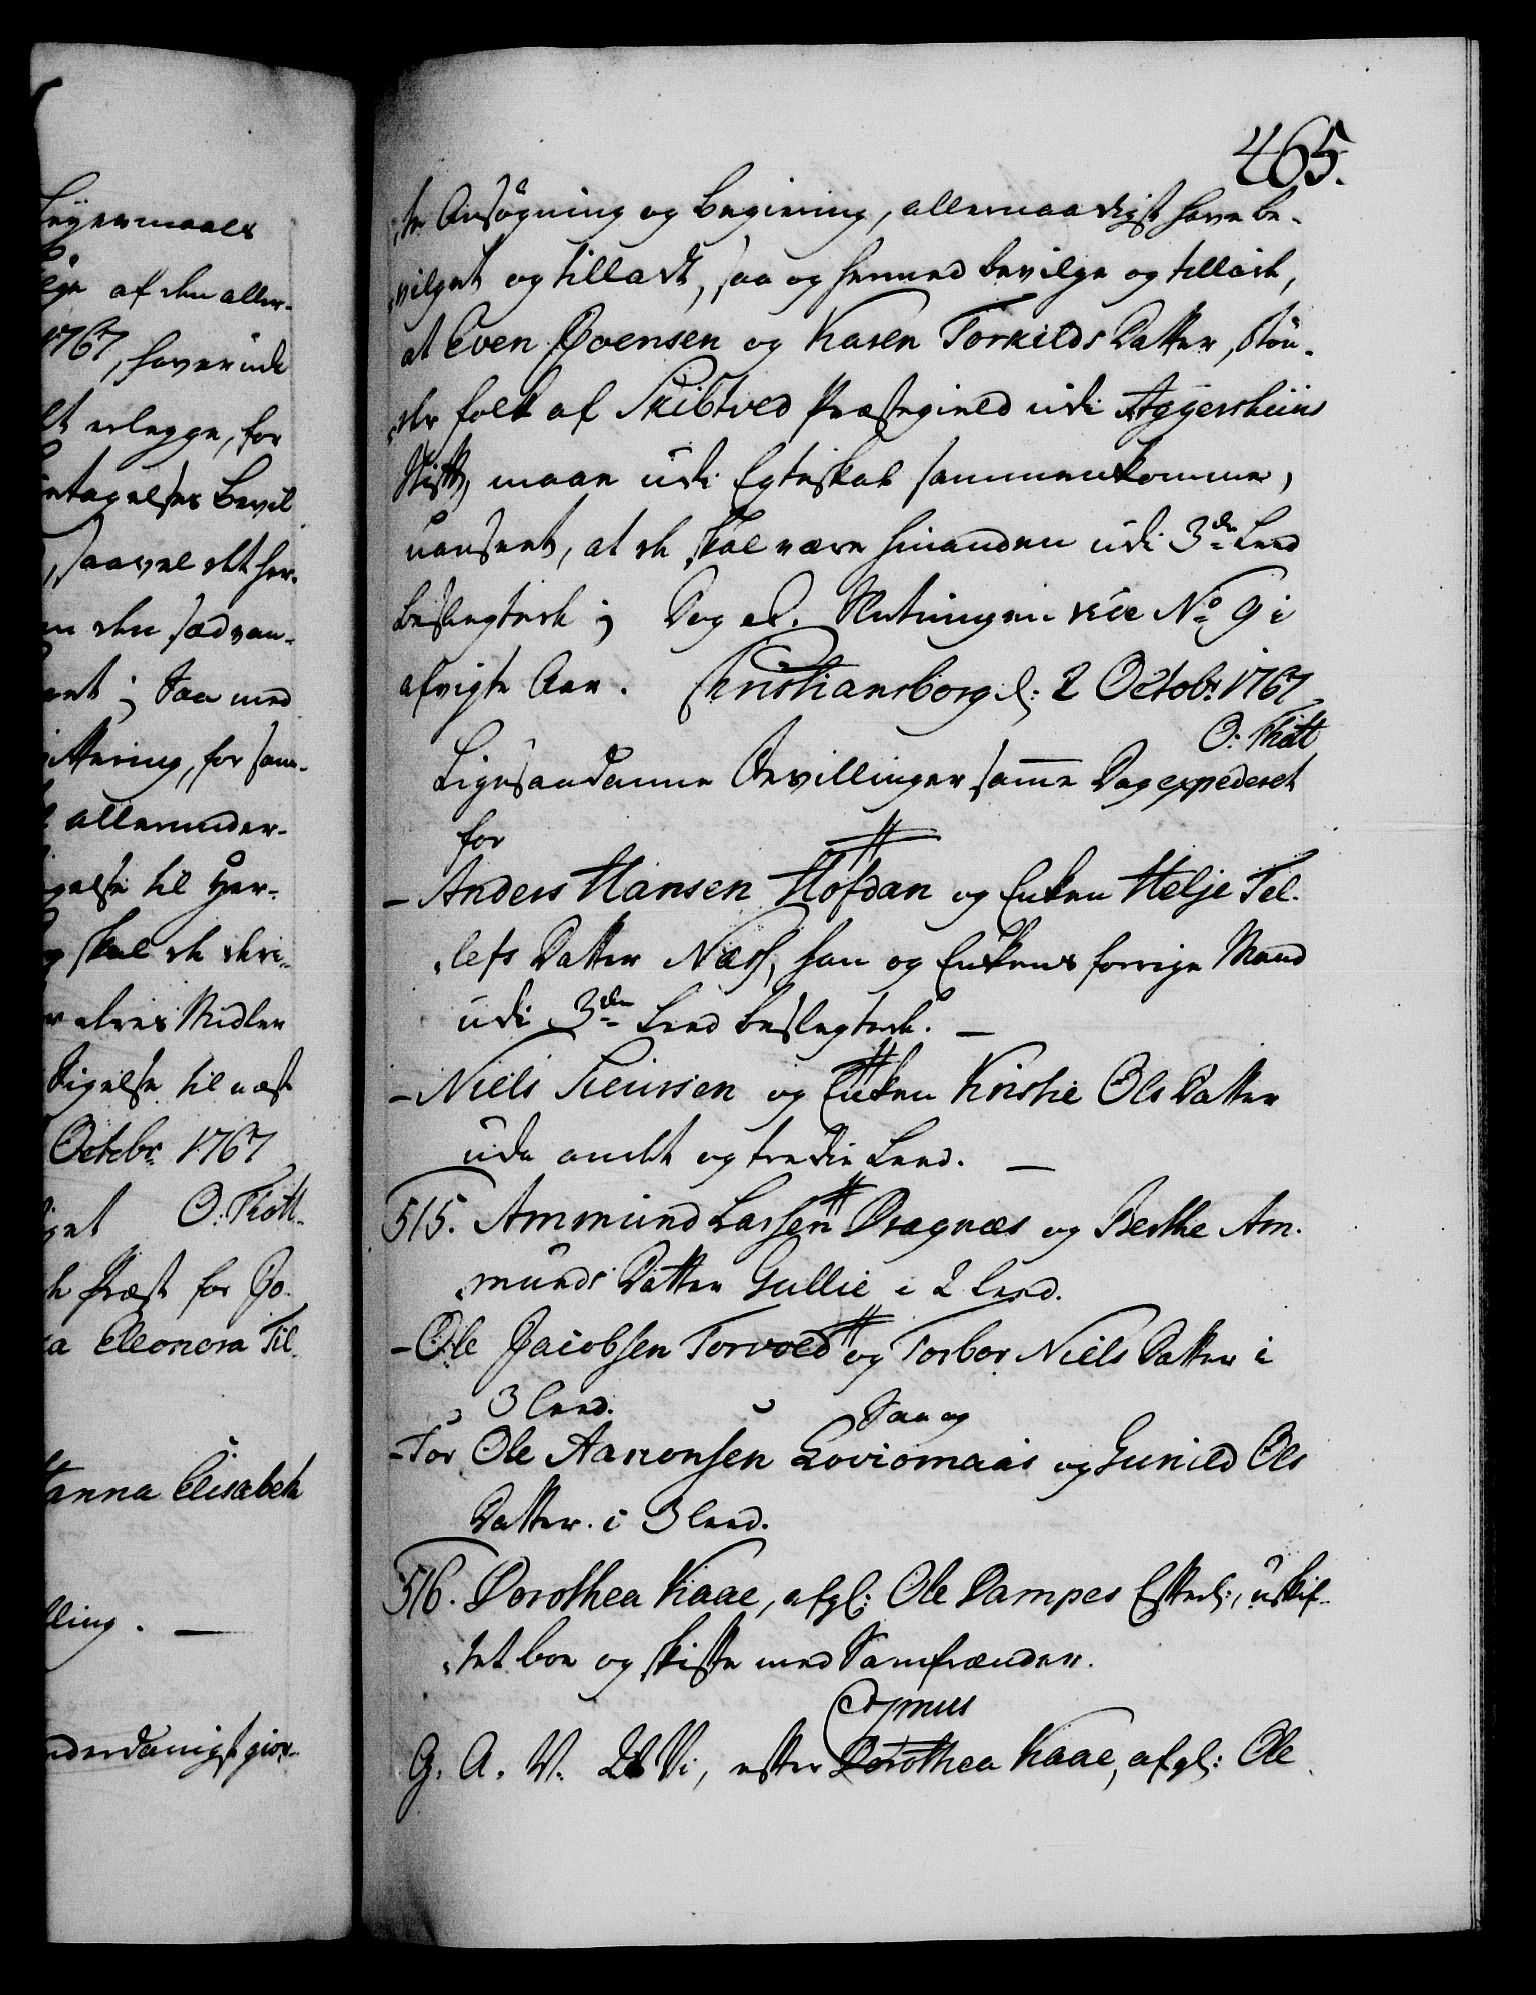 Leyermaals
af den aller-
1767, haver und
at erlegge, for
tagelses Bevil
, saavel det her-
den sædvan-
; Saa med
for saa-
allerunder-
gelse til Her-
skal de
Midler
sigelse til næst
Octobr. 1767
O: Thott.
Præst for Jo-
Eleonora Til
Hanna Elisabeth
ling. —
nderdanigst gior-
465.
te Ansøgning og Begiering, allernaadigst have be-
vilget og tilladt, saa og hermed bevilge og tillade,
at Even Joensen og Karen Torkilds Datter, Bøn-
der folk af Skibtved Præstegield udi Aggershuus
Stift, maae udi Egteskab sammenkomme,
uanseet, at de skal være hinanden udi 3de Leed
beslegtede; Dog al. Slutningen vide No 9 i
afvigte Aar. Christiansborg d: 2 Octobr. 1767
O: Thott
Ligesaadanne Bevillinger samme Dag expederet
for
- Anders Hansen Hofdan og Enken Helje Tel-
lefs Datter Næss, han og Enkens forrige Mand
udi 3de Leed beslegtede. —
- Niels Siensen og Enken Kirstie Ols Datter
udi andet og tredie Leed. —
515. Ammund Larsen Dragnæs og Berthe Am-
munds Datter Gullie i 2 Leed.
- Ole Jacobsen Torvold og Torbor Niels Datter i
3 Leed.
Saa og
- For Ole Aaronsen Loviomaas og Gunild Ols
Datter i 3 Leed.
516. Dorothea Kaae, afgl: Ole Dampes Efterl:, uskif-
tet boe og skifte med Samfrænder.
Copmus
G. A. V. , efter Dorothea Kaae, afgl: Ole